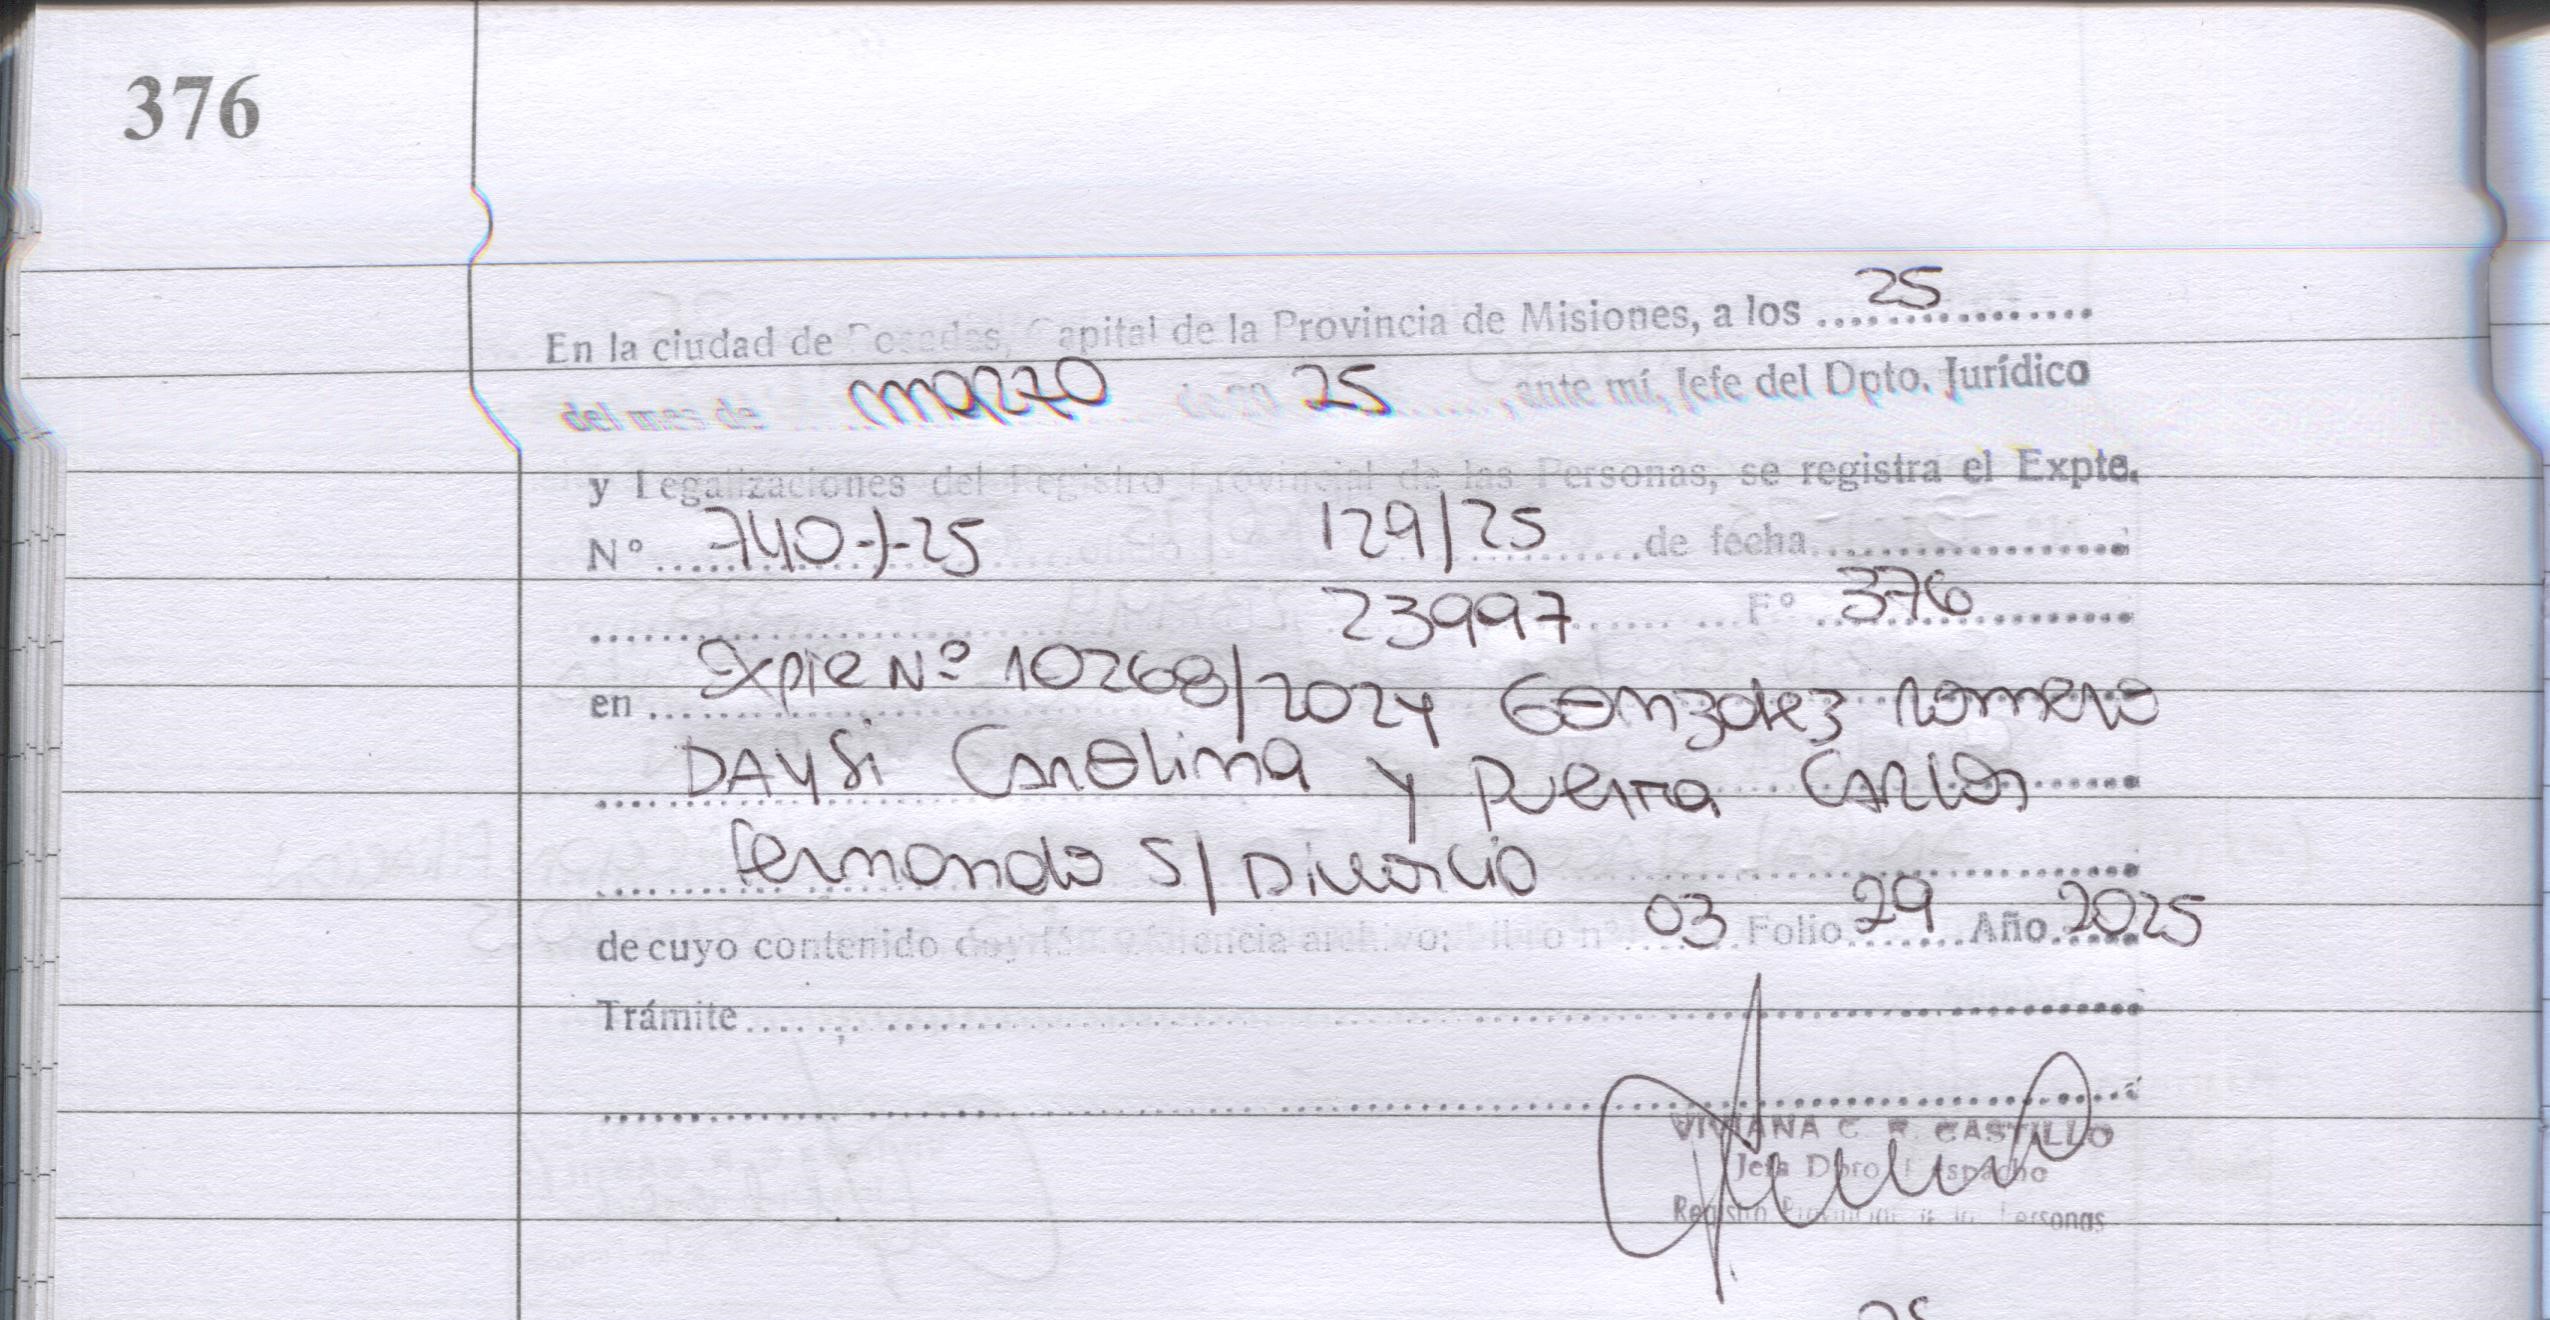 376
En la ciudad de Posadas, Capital de la Provincia de Misiones, a los 25
del mes de marzo de 20 25, ante mí, Jefe del Dpto. Jurídico
y Legalizaciones del Registro Provincial de las Personas, se registra el Expte.
Nº 740-J-25 129/25 de fecha
23997 Fº 376
en Expte Nº 10268/2024 Gonzalez Romero
DAYSi Carolina y Carlos
Fernando S/ Divorcio
de cuyo contenido doy fé Referencia archivo: Libro nº 03 Folio 29 Año 2025
Trámite
VIVIANA C. R. CASTILLO
Jefa Dpto. Despacho
Registro Provincial de las Personas
25